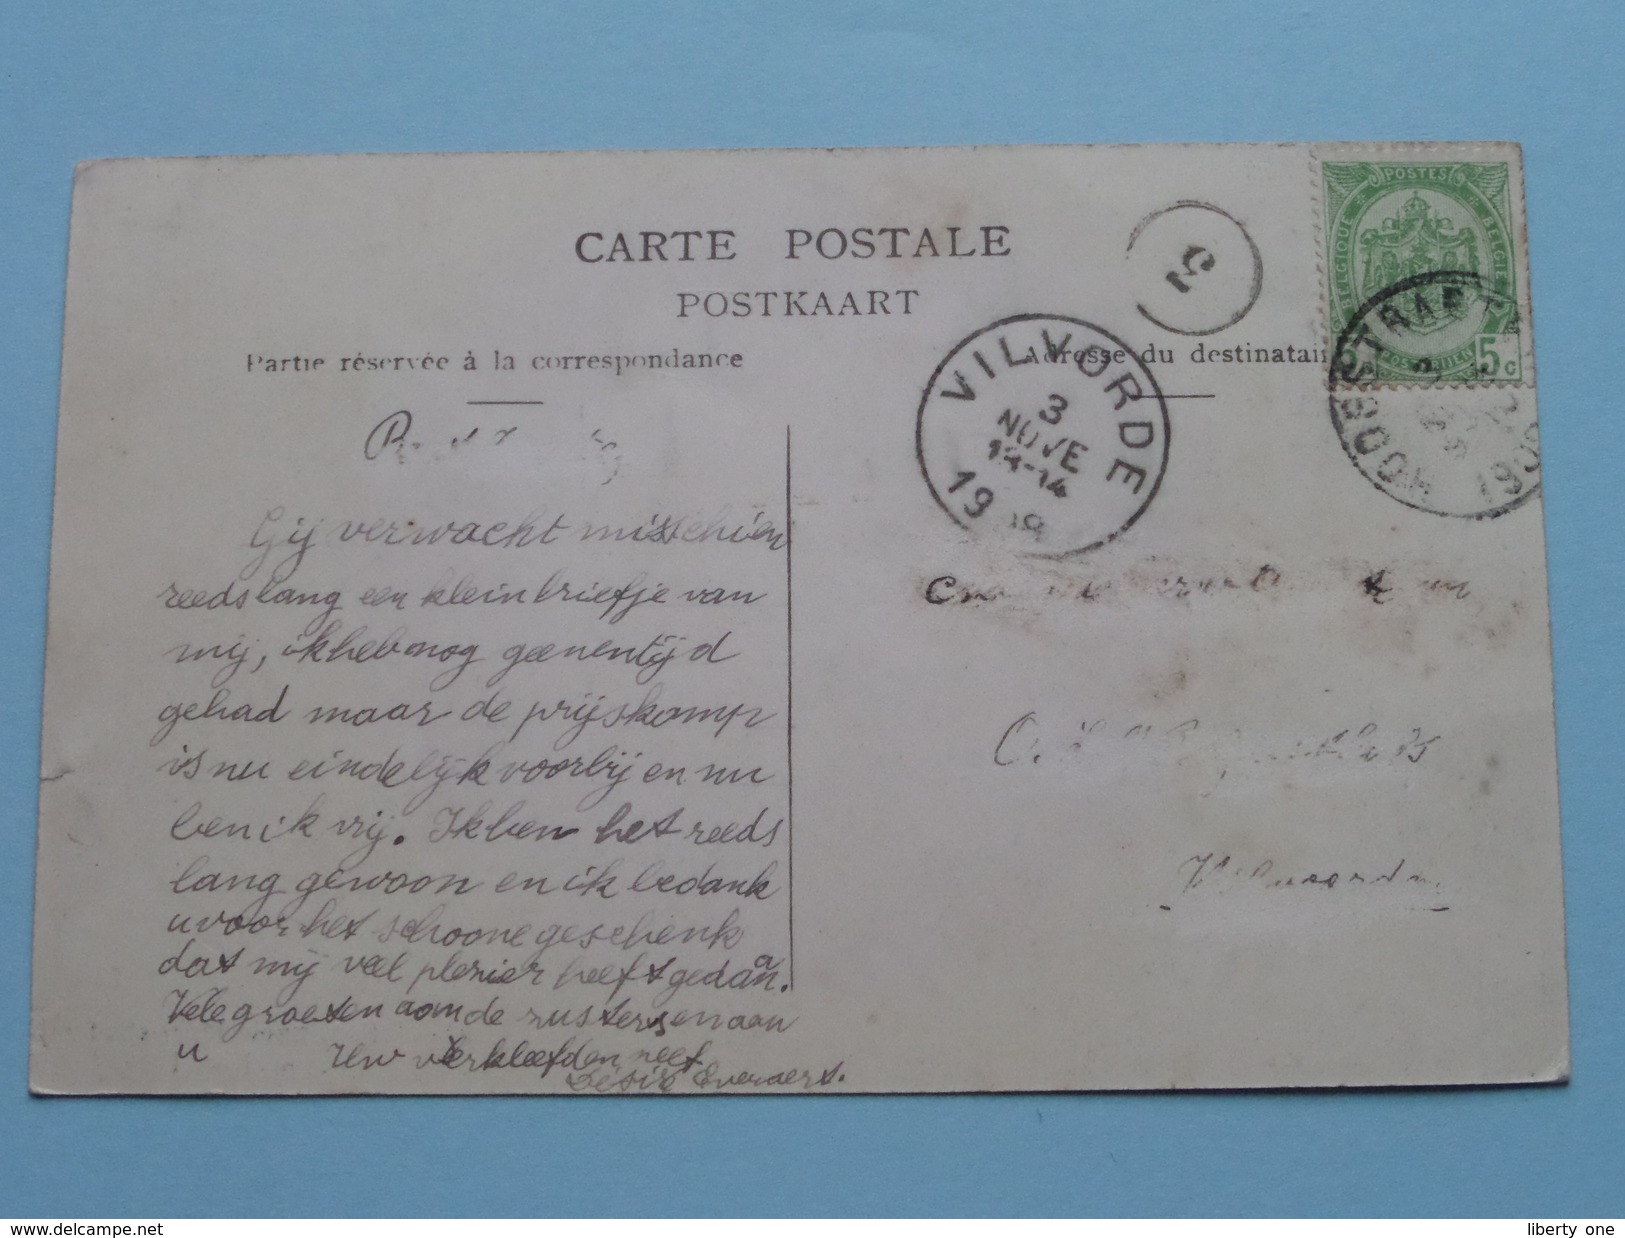 CARTE POSTALE
POSTKAART
Partie réservée à la correspondance
Adresse du destinatai
POSTES
BELGIQUE
BELGIE
5 c
5
VILVORDE
3
NOVE
19
HOOGSTRAETEN
Gij verwacht misschien
reeds lang een klein briefje van
mij, ik heb nog geenen tijd
gehad maar de prijskamp
is nu eindelijk voorbij en nu
ben ik vrij. Ik ben het reeds
lang gewoon en ik bedank
u voor het schoone geschenk
dat mij veel plezier heeft gedaan.
Vele groeten aan de zusters en aan
u Uw verkleefden neef
Désiré Everaers.
Vilvoorden
www.delcampe.net
liberty_one